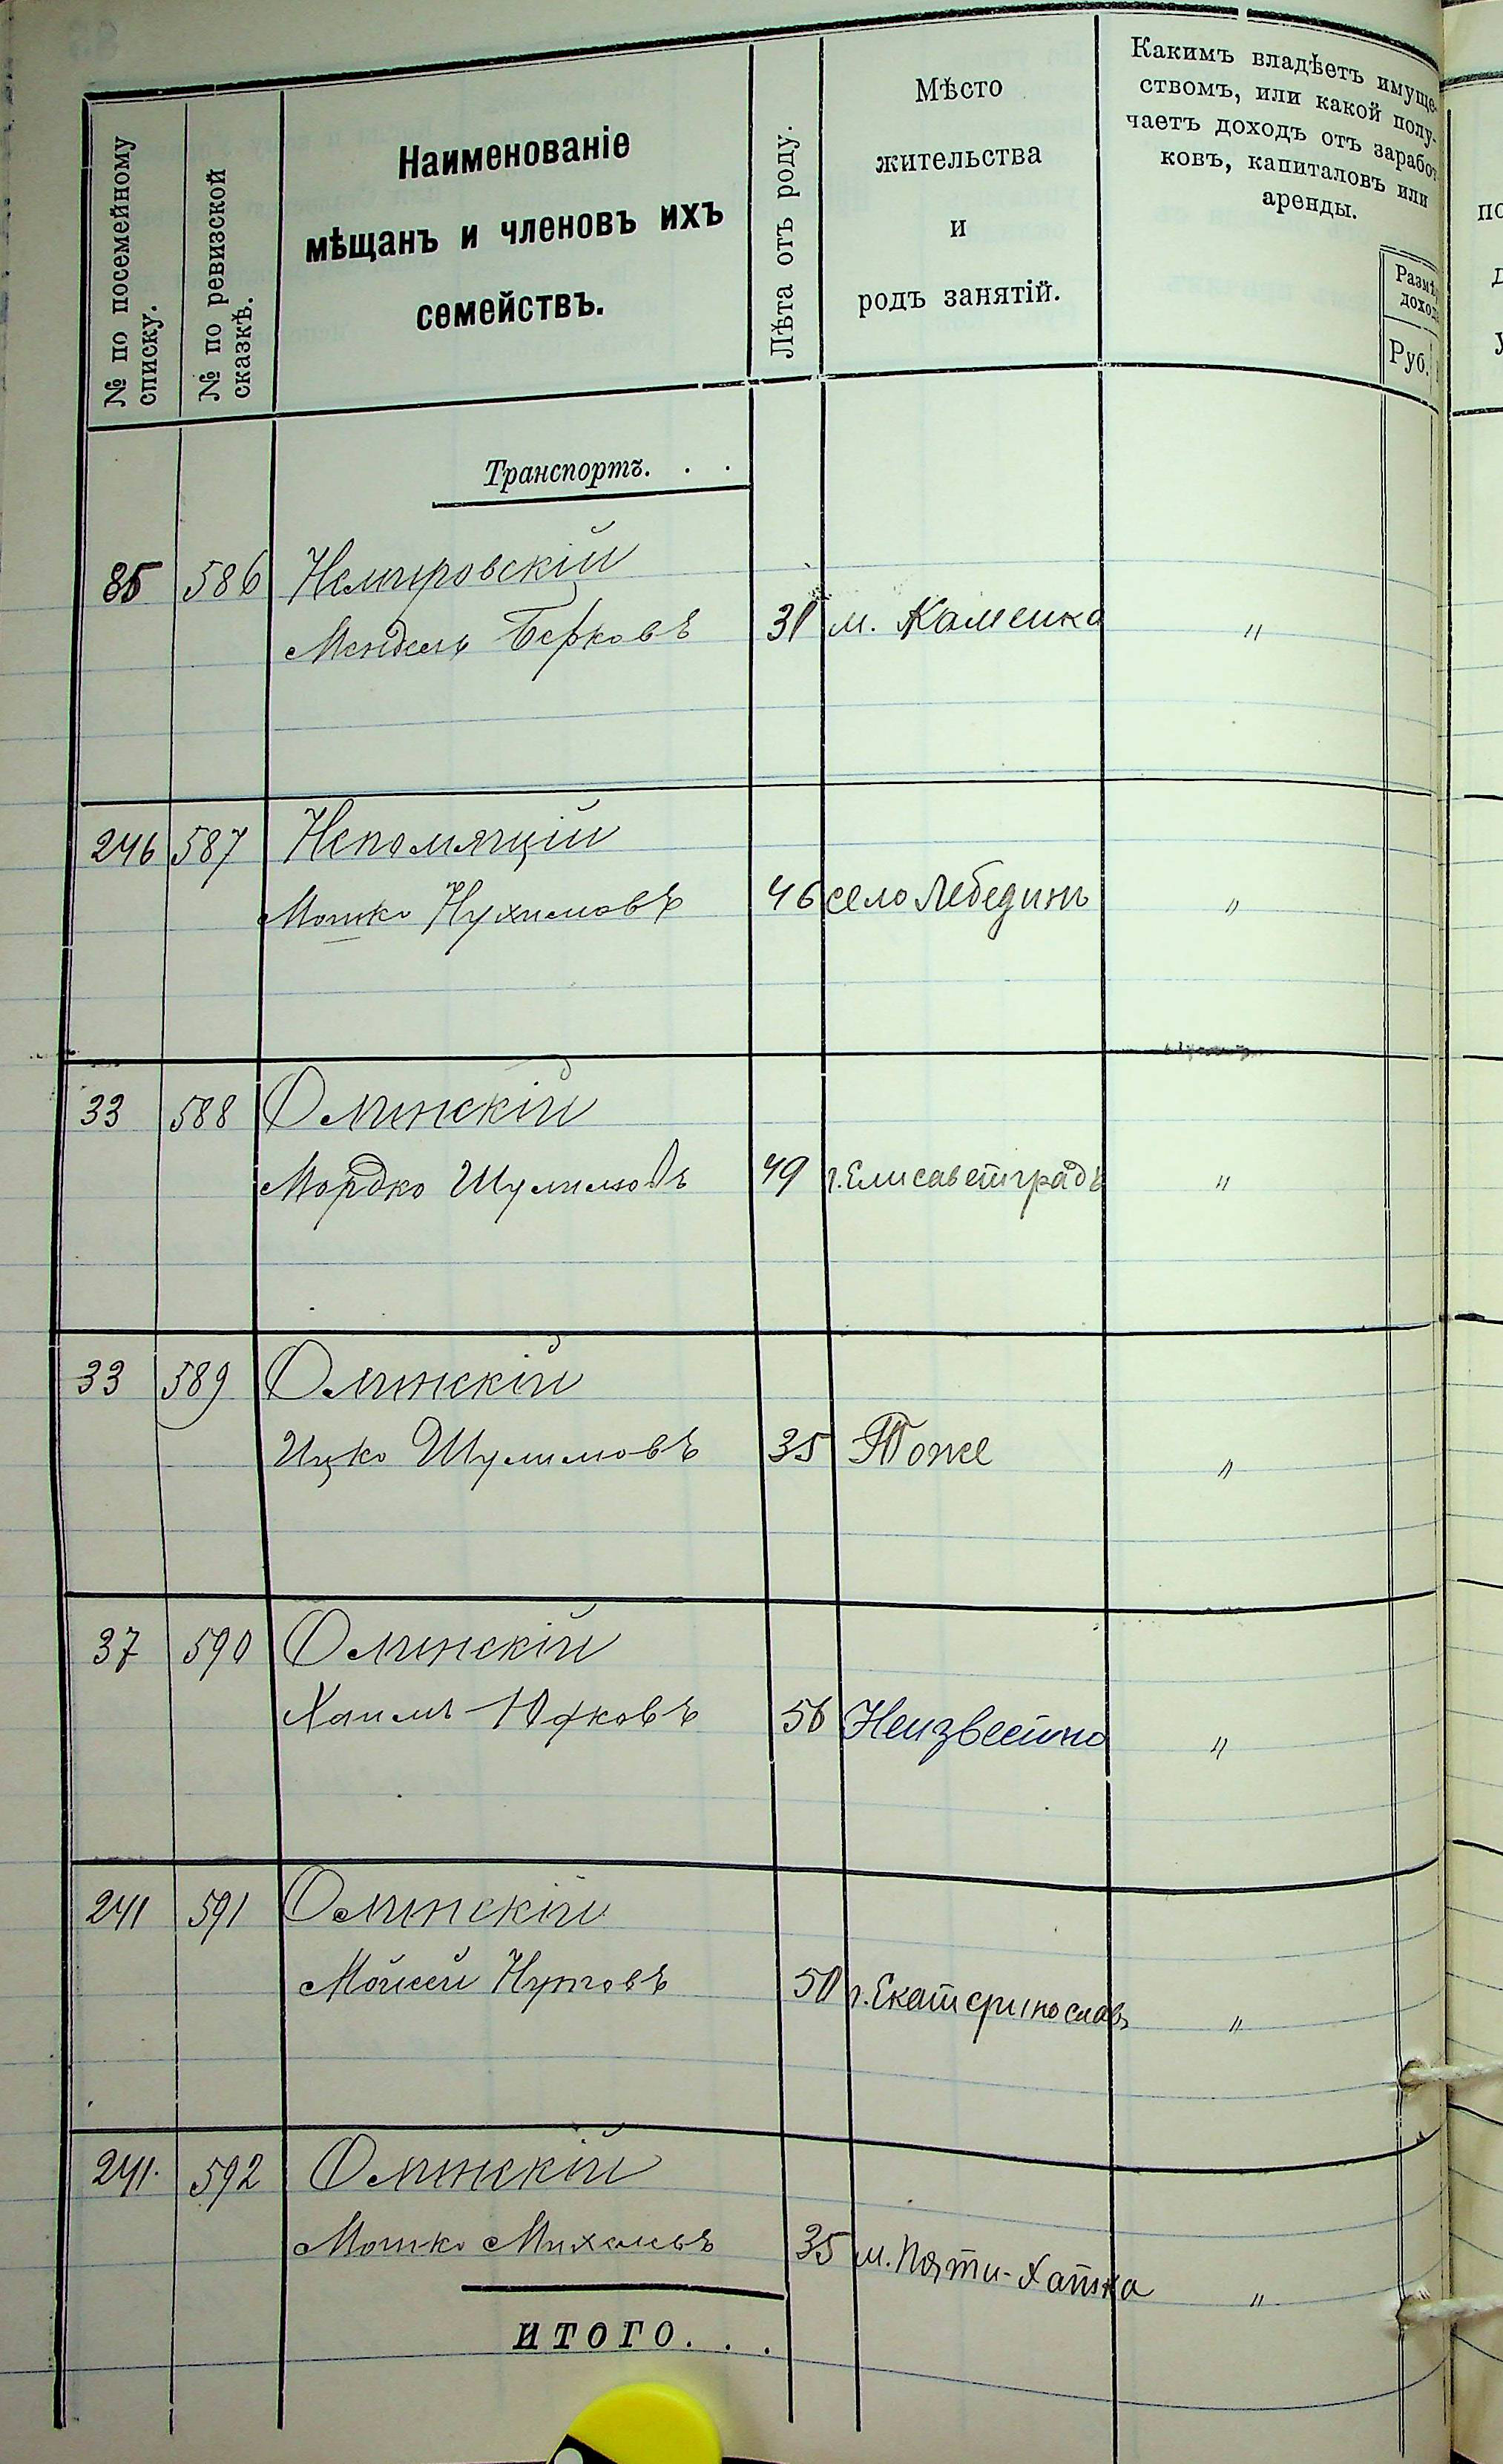 № по посемейному
списку.
№ по ревизской
сказкѣ.
Наименованіе
мѣщанъ и членовъ ихъ
семействъ.
Лѣта отъ роду.
Мѣсто
жительства
и
родъ занятій.
Какимъ владѣетъ имуще-
ствомъ, или какой полу-
чаетъ доходъ отъ заработ-
ковъ, капиталовъ или
аренды.
Руб.
Транспортъ. . .
85 586 Немировскій
Мендель Берковъ 31 м. Каменка "
246 587 Непомящій
Мошко Нухимовъ 46 село Лебединъ "
33 588 Олинскій
Мордко Шулимовъ 49 г. Елисаветградъ "
33 589 Олинскій
Ицко Шулимовъ 35 Тоже "
37 590 Олинскій
Хаимъ Юдковъ 56 Неизвестно "
241 591 Олинскій
Мойсей 50 г. Екатеринославъ "
241. 592 Олинскій
Мошко Михелевъ 35 м. Пяти-Хатка "
ИТОГО. . .